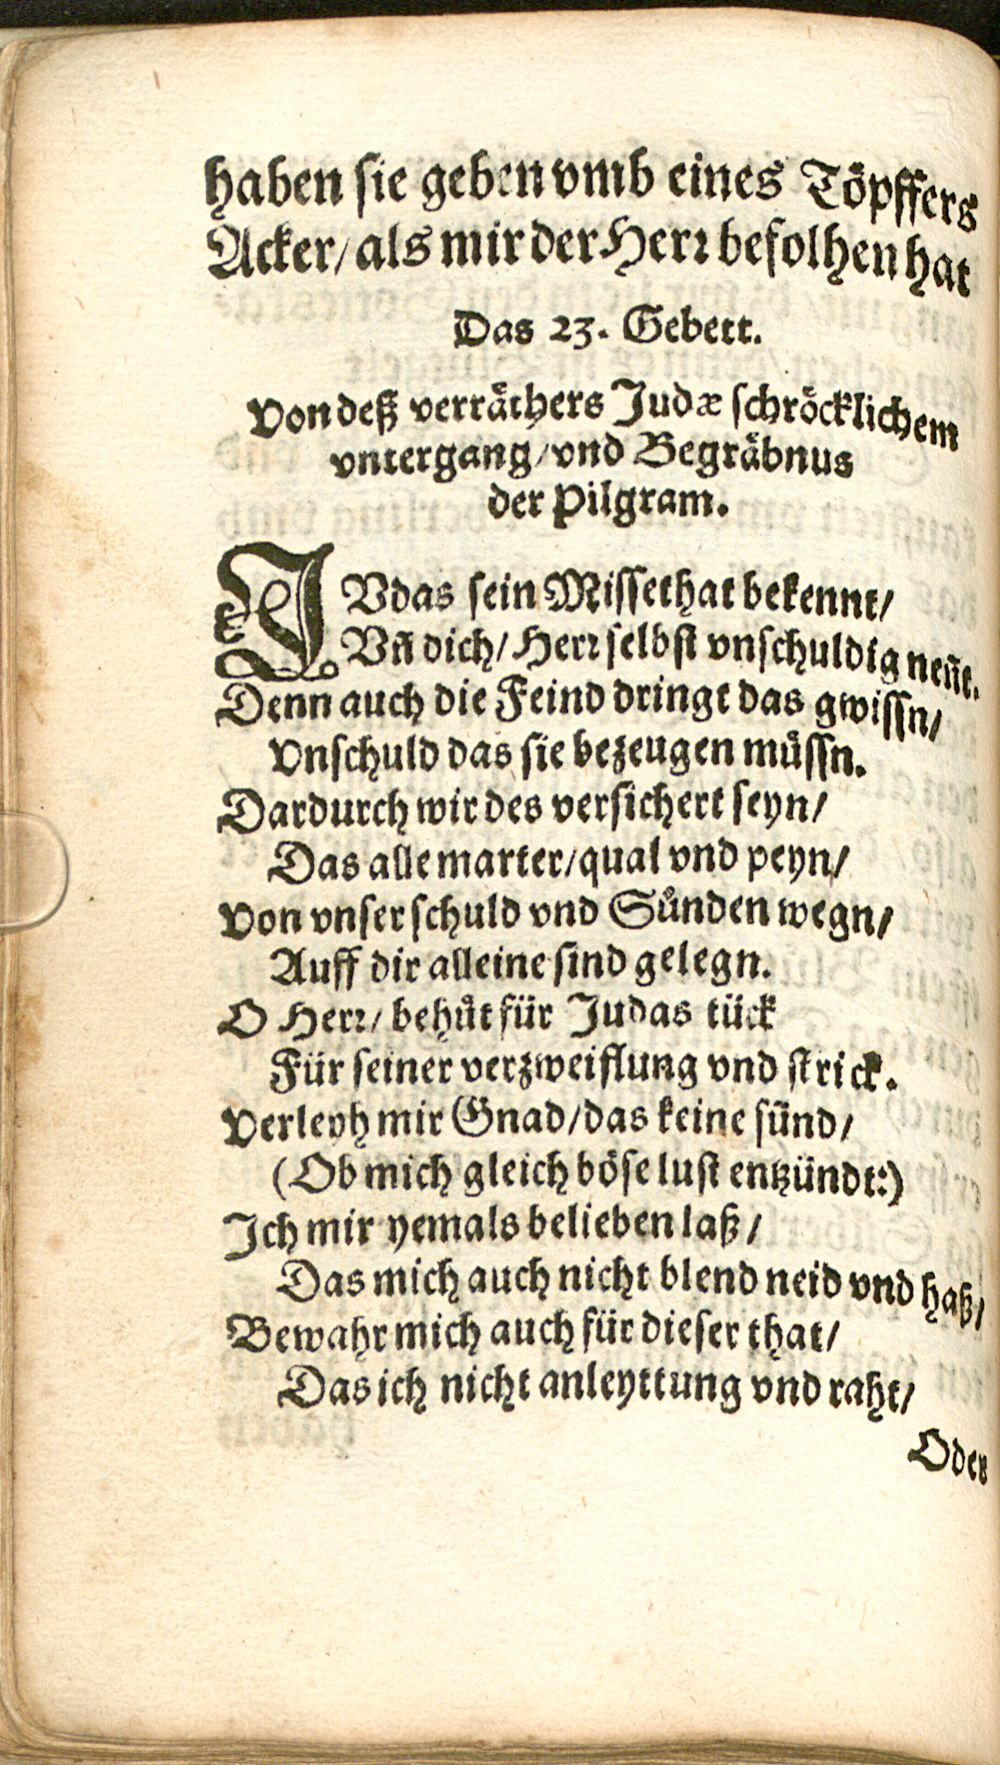 haben sie geben vmb eines Töpffers
Acker/ als mir der Herr befolhen hat
Das 23. Gebett.
Von deß verräthers Judæ schröcklichem
vntergang/ vnd Begräbnus
der Pilgram.
JVdas sein Missethat bekennt/
Vñ dich/ Herr selbst vnschuldig neñt.
Denn auch die Feind dringt das gwissn/
Vnschuld das sie bezeugen müssn.
Dardurch wir des versichert seyn/
Das alle marter/ qual vnd peyn/
Von vnser schuld vnd Sünden wegn/
Auff dir alleine sind gelegn.
O Herr/ behüt für Judas tück
Für seiner verzweiflung vnd strick.
Verleyh mir Gnad/ das keine sünd/
(Ob mich gleich böse lust entzündt:)
Ich mir yemals belieben laß/
Das mich auch nicht blend neid vnd haß/
Bewahr mich auch für dieser that/
Das ich nicht anleyttung vnd raht/
Oder